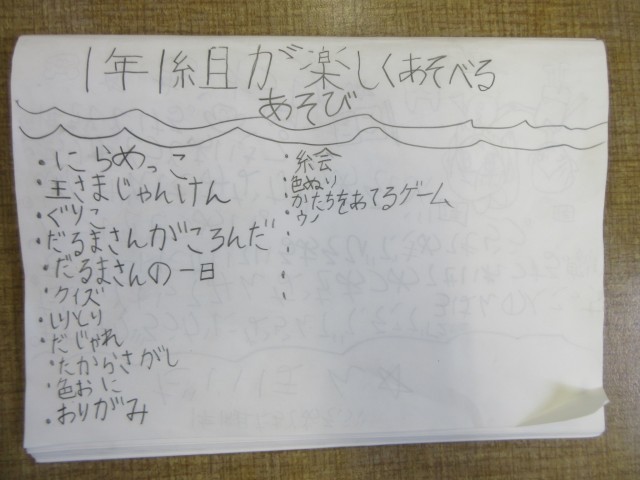 1年1組が楽しくあそべる
あそび
・にらめっこ
・王さまじゃんけん
・ぐりこ
・だるまさんがころんだ
・だるまさんの一日
・クイズ
・しりとり
・だじゃれ
・たからさがし
・色おに
・おりがみ
・絵会
・色ぬり
・かたちをあてるゲーム
・ウノ